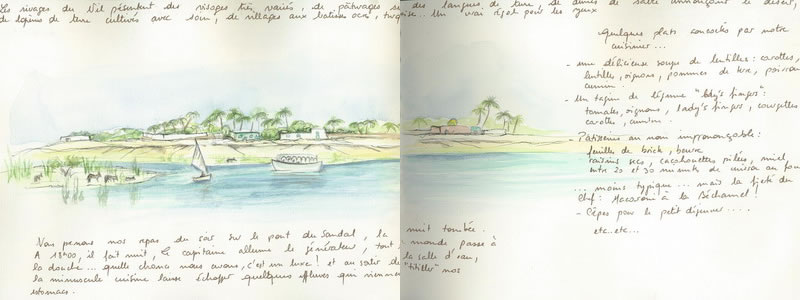 Les rivages du Nil présentent des visages très variés, de pâturages se
de lopins de terre cultivés avec soin, de villages aux bâtisses ocre, turq
des langues de terre, de dunes de sable annonçant le désert,
ise... Un vrai régal pour les yeux
Quelques plats concoctés par notre
cuisinier...
- une délicieuse soupe de lentilles : carottes,
lentilles, oignons, pommes de terre, poivron
cumin.
- Un tagine de légume "lady's fingers" :
tomates, oignons, lady's fingers, courgettes
carottes, cumin.
Pâtisseries au nom imprononçable :
feuilles de brick, beurre
raisins secs, cacahouettes pilées, miel
entre 20 et 30 minutes de cuisson au four
... moins typique ... mais la fierté du
Chef : Macaroni à la Béchamel !
- Crêpes pour le petit déjeuner ....
etc..etc...
Nous prenons nos repas du soir sur le pont du Sandal, la
A 18h00, il fait nuit, le capitaine allume le générateur, tout
la douche... quelle chance nous avons, c'est un luxe ! et au sortir de
la minuscule cuisine laisse échapper quelques effluves qui viennent
estomacs.
nuit tombée.
monde, passe à
la salle d'eau,
"titiller" nos